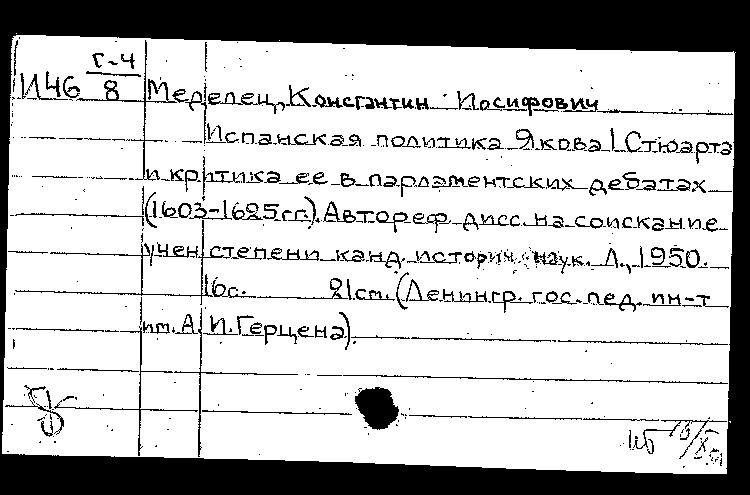 Г-4
И46 8 Меделец, Константин Иосифович
Испанская политика Якова I Стюарта
и критика ее в парламентских дебатах
(1603-1625гг.). Автореф. дисс. на соискание
учен. степени канд. историч. наук. Л., 1950.
16с. 21см. (Ленингр. гос. пед. ин-т
им. А. И. Герцена).